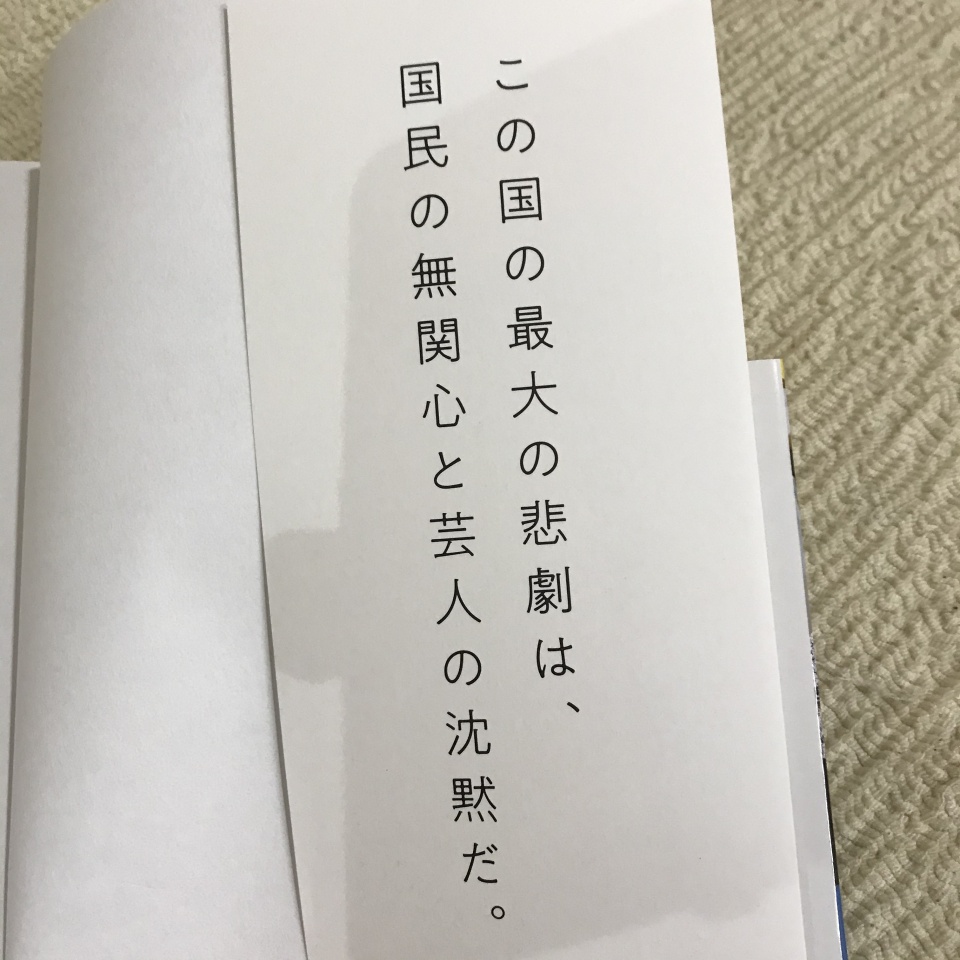 この国の最大の悲劇は、
国民の無関心と芸人の沈黙だ。